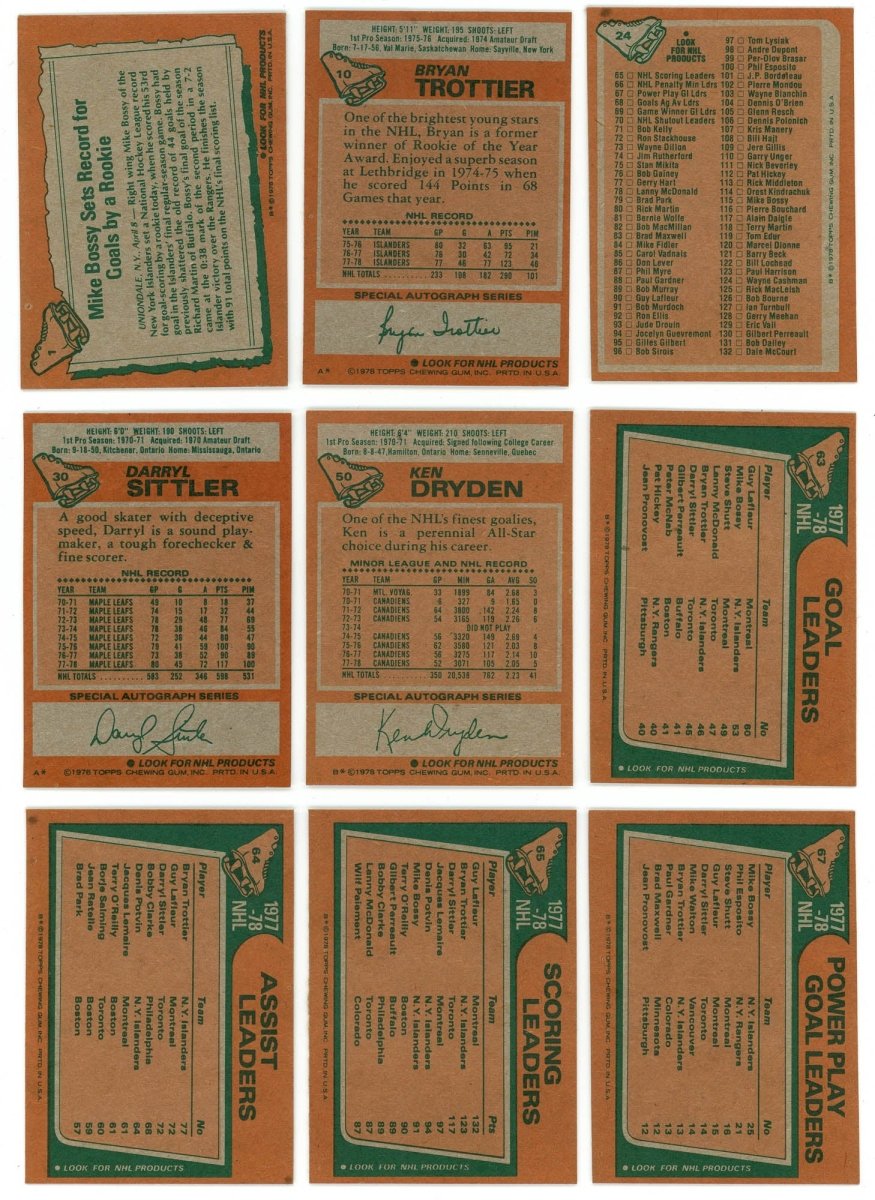 1
Mike Bossy Sets Record for
Goals by a Rookie
UNIONDALE, N.Y. April 8 — Right wing Mike Bossy of the
New York Islanders set a National Hockey League record
for goal-scoring by a rookie today, when he scored his 53rd
goal in the Islanders' final regular-season game. Bossy had
previously shattered the old record of 44 goals held by
Richard Martin of Buffalo. Bossy's final goal of the season
came at the 0:38 mark of the second period in a 7-2
Islander victory over the Rangers. He finishes the season
with 91 total points on the NHL's final scoring list.
● LOOK FOR NHL PRODUCTS
B* ©1978 TOPPS CHEWING GUM, INC. PRTD. IN U.S.A.
HEIGHT: 5'11" WEIGHT: 195 SHOOTS: LEFT
1st Pro Season: 1975-76 Acquired: 1974 Amateur Draft
Born: 7-17-56, Val Marie, Saskatchewan Home: Sayville, New York
10
BRYAN
TROTTIER
One of the brightest young stars
in the NHL, Bryan is a former
winner of Rookie of the Year
Award. Enjoyed a superb season
at Lethbridge in 1974-75 when
he scored 144 Points in 68
Games that year.
NHL RECORD
YEAR TEAM GP G A PTS PIM
75-76 ISLANDERS 80 32 63 95 21
76-77 ISLANDERS 76 30 42 72 34
77-78 ISLANDERS 77 46 77 123 46
NHL TOTALS 233 108 182 290 101
SPECIAL AUTOGRAPH SERIES
Bryan Trottier
● LOOK FOR NHL PRODUCTS
A* ©1978 TOPPS CHEWING GUM, INC. PRTD. IN U.S.A.
24
● LOOK
FOR NHL
PRODUCTS
65 □ NHL Scoring Leaders
66 □ NHL Penalty Min Ldrs
67 □ Power Play Gl Ldrs
68 □ Goals Ag Av Ldrs
69 □ Game Winner Gl Ldrs
70 □ NHL Shutout Leaders
71 □ Bob Kelly
72 □ Ron Stackhouse
73 □ Wayne Dillon
74 □ Jim Rutherford
75 □ Stan Mikita
76 □ Bob Gainey
77 □ Gerry Hart
78 □ Lanny McDonald
79 □ Brad Park
80 □ Rick Martin
81 □ Bernie Wolfe
82 □ Bob MacMillan
83 □ Brad Maxwell
84 □ Mike Fidler
85 □ Carol Vadnais
86 □ Don Lever
87 □ Phil Myre
88 □ Paul Gardner
89 □ Bob Murray
90 □ Guy Lafleur
91 □ Bob Murdoch
92 □ Ron Ellis
93 □ Jude Drouin
94 □ Jocelyn Guevremont
95 □ Gilles Gilbert
96 □ Bob Sirois
97 □ Tom Lysiak
98 □ Andre Dupont
99 □ Per-Olov Brasar
100 □ Phil Esposito
101 □ J.P. Bordeleau
102 □ Pierre Mondou
103 □ Wayne Bianchin
104 □ Dennis O'Brien
105 □ Glenn Resch
106 □ Dennis Polonich
107 □ Kris Manery
108 □ Bill Hajt
109 □ Jere Gillis
110 □ Garry Unger
111 □ Nick Beverley
112 □ Pat Hickey
113 □ Rick Middleton
114 □ Orest Kindrachuk
115 □ Mike Bossy
116 □ Pierre Bouchard
117 □ Alain Daigle
118 □ Terry Martin
119 □ Tom Edur
120 □ Marcel Dionne
121 □ Barry Beck
122 □ Bill Lochead
123 □ Paul Harrison
124 □ Wayne Cashman
125 □ Rick MacLeish
126 □ Bob Bourne
127 □ Ian Turnbull
128 □ Gerry Meehan
129 □ Eric Vail
130 □ Gilbert Perreault
131 □ Bob Dailey
132 □ Dale McCourt
B* ©1978 TOPPS CHEWING GUM, INC. PRTD. IN U.S.A.
HEIGHT: 6'0" WEIGHT: 190 SHOOTS: LEFT
1st Pro Season: 1970-71 Acquired: 1970 Amateur Draft
Born: 9-18-50, Kitchener, Ontario Home: Mississauga, Ontario
30
DARRYL
SITTLER
A good skater with deceptive
speed, Darryl is a sound play-
maker, a tough forechecker &
fine scorer.
NHL RECORD
YEAR TEAM GP G A PTS PIM
70-71 MAPLE LEAFS 49 10 8 18 37
71-72 MAPLE LEAFS 74 15 17 32 44
72-73 MAPLE LEAFS 78 29 48 77 69
73-74 MAPLE LEAFS 78 38 46 84 55
74-75 MAPLE LEAFS 72 36 44 80 47
75-76 MAPLE LEAFS 79 41 59 100 90
76-77 MAPLE LEAFS 73 38 52 90 89
77-78 MAPLE LEAFS 80 45 72 117 100
NHL TOTALS 583 252 346 598 531
SPECIAL AUTOGRAPH SERIES
Darryl Sittler
● LOOK FOR NHL PRODUCTS
A* ©1978 TOPPS CHEWING GUM, INC. PRTD. IN U.S.A.
HEIGHT: 6'4" WEIGHT: 210 SHOOTS: LEFT
1st Pro Season: 1970-71 Acquired: Signed following College Career
Born: 8-8-47, Hamilton, Ontario Home: Senneville, Quebec
50
KEN
DRYDEN
One of the NHL's finest goalies,
Ken is a perennial All-Star
choice during his career.
MINOR LEAGUE AND NHL RECORD
YEAR TEAM GP MIN GA AVG SO
70-71 MTL. VOYAG 33 1899 84 2.68 3
70-71 CANADIENS 6 327 9 1.65 0
71-72 CANADIENS 64 3800 142 2.24 8
72-73 CANADIENS 54 3165 119 2.26 6
73-74 DID NOT PLAY
74-75 CANADIENS 56 3320 149 2.69 4
75-76 CANADIENS 62 3580 121 2.03 8
76-77 CANADIENS 56 3275 117 2.14 10
77-78 CANADIENS 52 3071 105 2.05 5
NHL TOTALS 350 20,538 762 2.23 41
SPECIAL AUTOGRAPH SERIES
Ken Dryden
● LOOK FOR NHL PRODUCTS
B* ©1978 TOPPS CHEWING GUM, INC. PRTD. IN U.S.A.
63
1977
-78
NHL
GOAL
LEADERS
Player Team No
Guy Lafleur Montreal 60
Mike Bossy N.Y. Islanders 53
Steve Shutt Montreal 49
Lanny McDonald Toronto 47
Bryan Trottier N.Y. Islanders 46
Darryl Sittler Toronto 45
Gilbert Perreault Buffalo 41
Peter McNab Boston 41
Pat Hickey N.Y. Rangers 40
Jean Pronovost Pittsburgh 40
● LOOK FOR NHL PRODUCTS
B* ©1978 TOPPS CHEWING GUM, INC. PRTD. IN U.S.A.
64
1977
-78
NHL
ASSIST
LEADERS
Player Team No
Bryan Trottier N.Y. Islanders 77
Guy Lafleur Montreal 72
Darryl Sittler Toronto 72
Bobby Clarke Philadelphia 68
Denis Potvin N.Y. Islanders 64
Jacques Lemaire Montreal 61
Terry O'Reilly Boston 61
Borje Salming Toronto 60
Jean Ratelle Boston 59
Brad Park Boston 57
● LOOK FOR NHL PRODUCTS
B* ©1978 TOPPS CHEWING GUM, INC. PRTD. IN U.S.A.
65
1977
-78
NHL
SCORING
LEADERS
Player Team Pts
Guy Lafleur Montreal 132
Bryan Trottier N.Y. Islanders 123
Darryl Sittler Toronto 117
Jacques Lemaire Montreal 97
Denis Potvin N.Y. Islanders 94
Mike Bossy N.Y. Islanders 91
Terry O'Reilly Boston 90
Gilbert Perreault Buffalo 89
Bobby Clarke Philadelphia 89
Lanny McDonald Toronto 87
Wilf Paiement Colorado 87
● LOOK FOR NHL PRODUCTS
B* ©1978 TOPPS CHEWING GUM, INC. PRTD. IN U.S.A.
67
1977
-78
NHL
POWER PLAY
GOAL LEADERS
Player Team No
Mike Bossy N.Y. Islanders 25
Phil Esposito N.Y. Rangers 21
Steve Shutt Montreal 16
Guy Lafleur Montreal 15
Darryl Sittler Toronto 14
Mike Walton Vancouver 14
Bryan Trottier N.Y. Islanders 13
Paul Gardner Colorado 13
Brad Maxwell Minnesota 12
Jean Pronovost Pittsburgh 12
● LOOK FOR NHL PRODUCTS
B* ©1978 TOPPS CHEWING GUM, INC. PRTD. IN U.S.A.